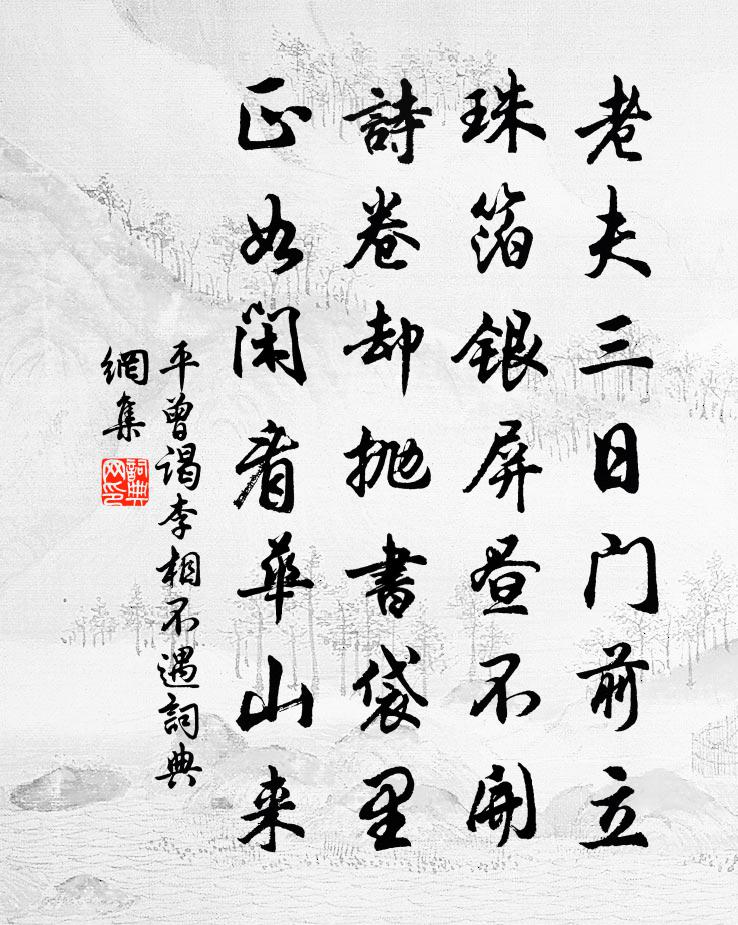 老夫三日门前立
珠箔銀屏昼不開
詩卷却抛書袋里
正如闲看華山来
平曾谒李相不遇詞典
網集
詞典
网印